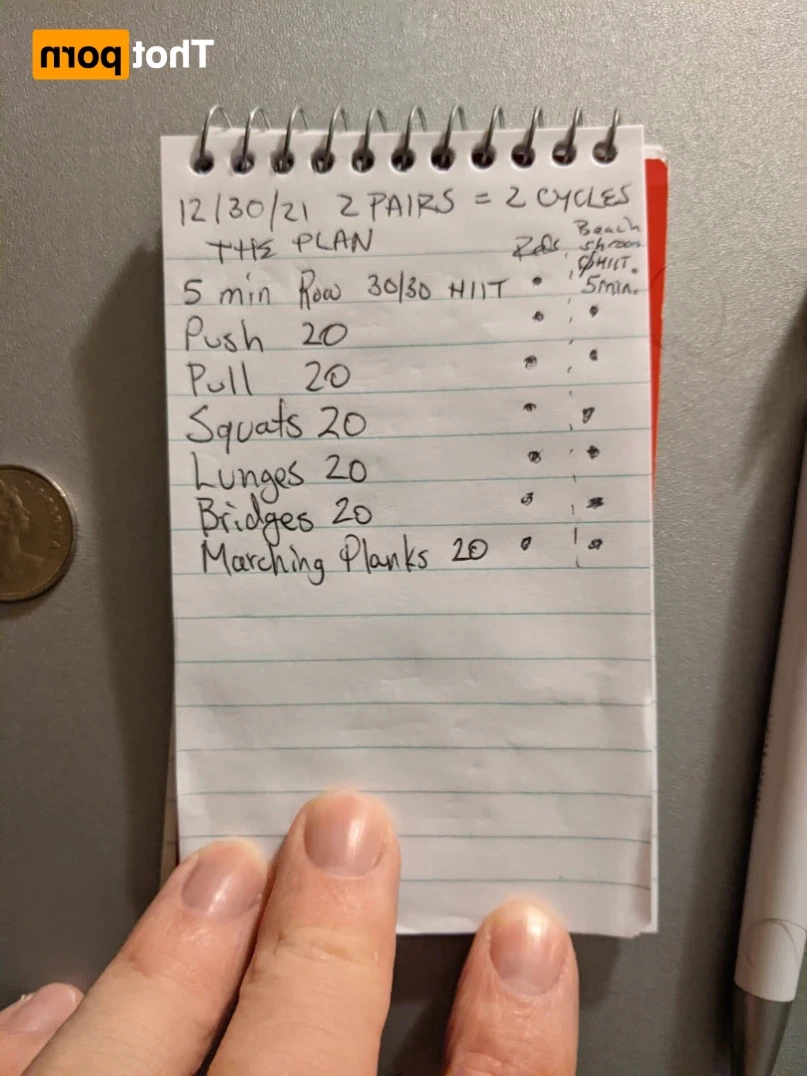 Thot porn
12/30/21 2 PAIRS = 2 CYCLES
THE PLAN
Beach
5 min Row 30/30 HIIT
HIIT.
5min.
Push 20
Pull 20
Squats 20
Lunges 20
Bridges 20
Marching Planks 20